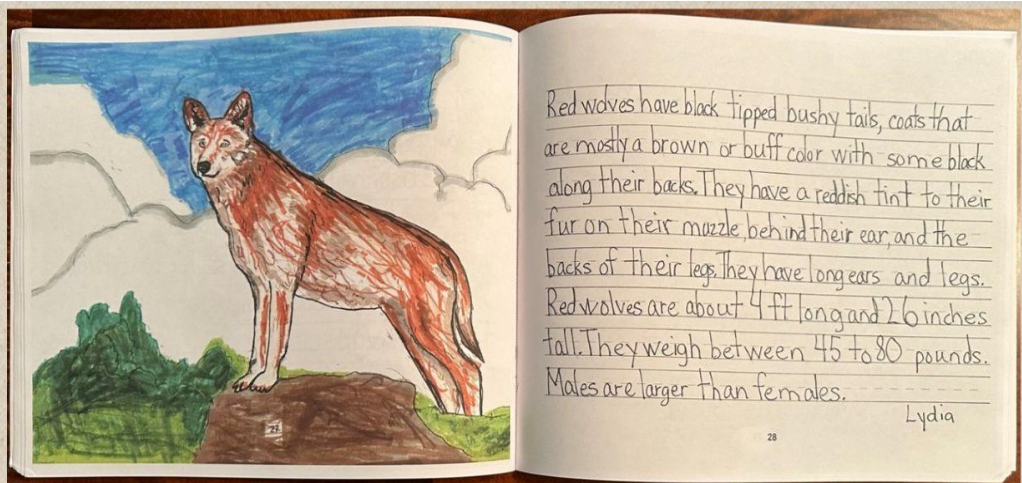 Red wolves have black tipped bushy tails, coats that
are mostly a brown or buff color with some black
along their backs. They have a reddish tint to their
fur on their muzzle, behind their ear, and the
backs of their legs. They have long ears and legs.
Red wolves are about 4 ft long and 26 inches
tall. They weigh between 45 to 80 pounds.
Males are larger than females.
Lydia
27
28